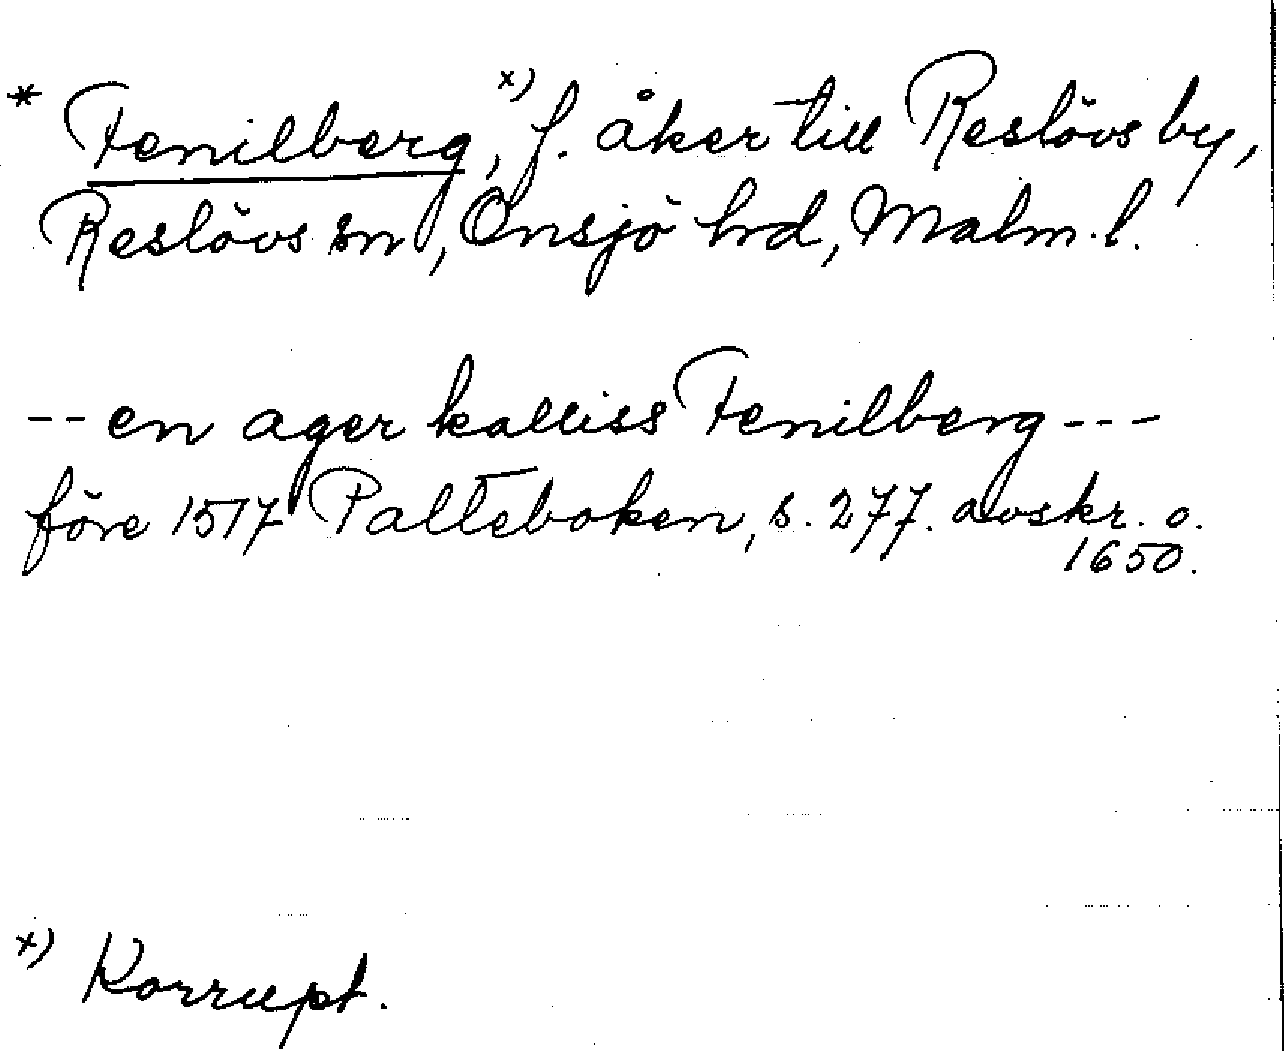 * Fenilberg, x) f. åker till Reslövs by,
Reslövs sn, Onsjö hrd, Malm. l.
-- en ager kalliss Fenilberg ---
före 1517 Palteboken, s. 277. avskr. o.
1650.
x) Korrupt.